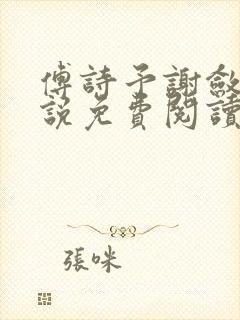 傅詩予謝斂
說免費閱讀
張咪